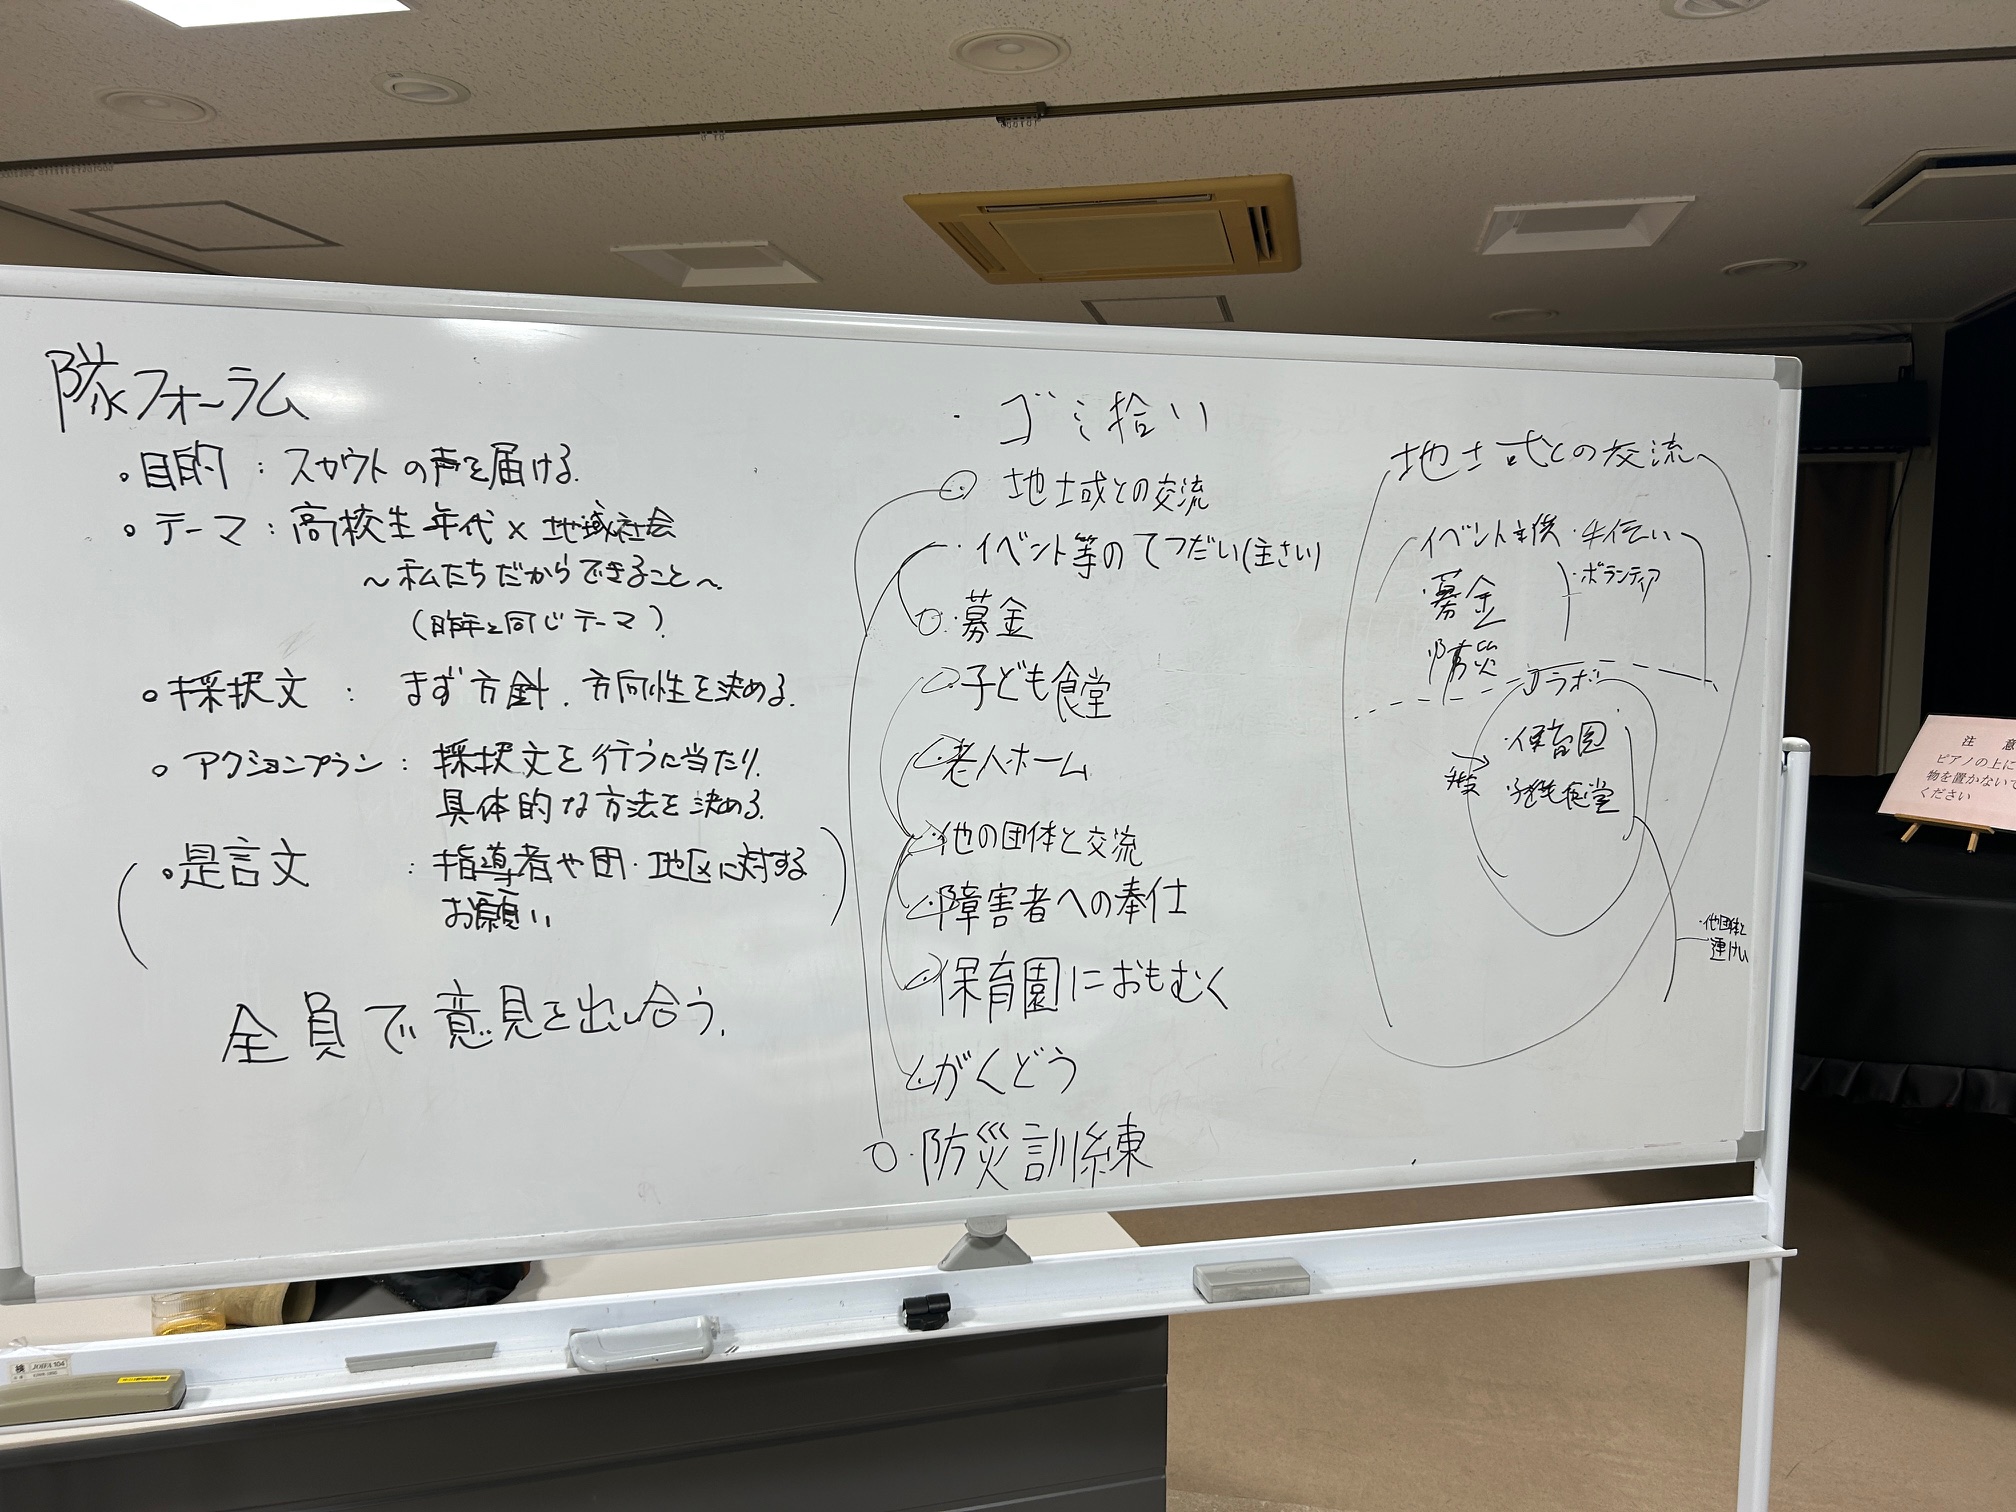 隊フォーラム
。目的：スカウトの声を届ける.
。テーマ：高校生年代×地域社会
～私たちだからできること～
(昨年と同じテーマ).
。採択文：まず方針.方向性を決める.
。アクションプラン：採択文を行うに当たり.
具体的な方法を決める.
(。是言文：指導者や団・地区に対する
お願い)
全員で意見を出し合う.
・ゴミ拾い
・地域との交流
・イベント等のてつだい(主さい)
○・募金
・子ども食堂
・老人ホーム
・他の団体と交流
・障害者への奉仕
・保育園におもむく
・がくどう
○・防災訓練
地域との交流
イベント主催・手伝い
・ボランティア
・募金
・防災
コラボ
・保育園
子ども食堂
・他団体と
連けい
注 意
ピアノの上に
物を置かないで
ください
検 JOIFA 104